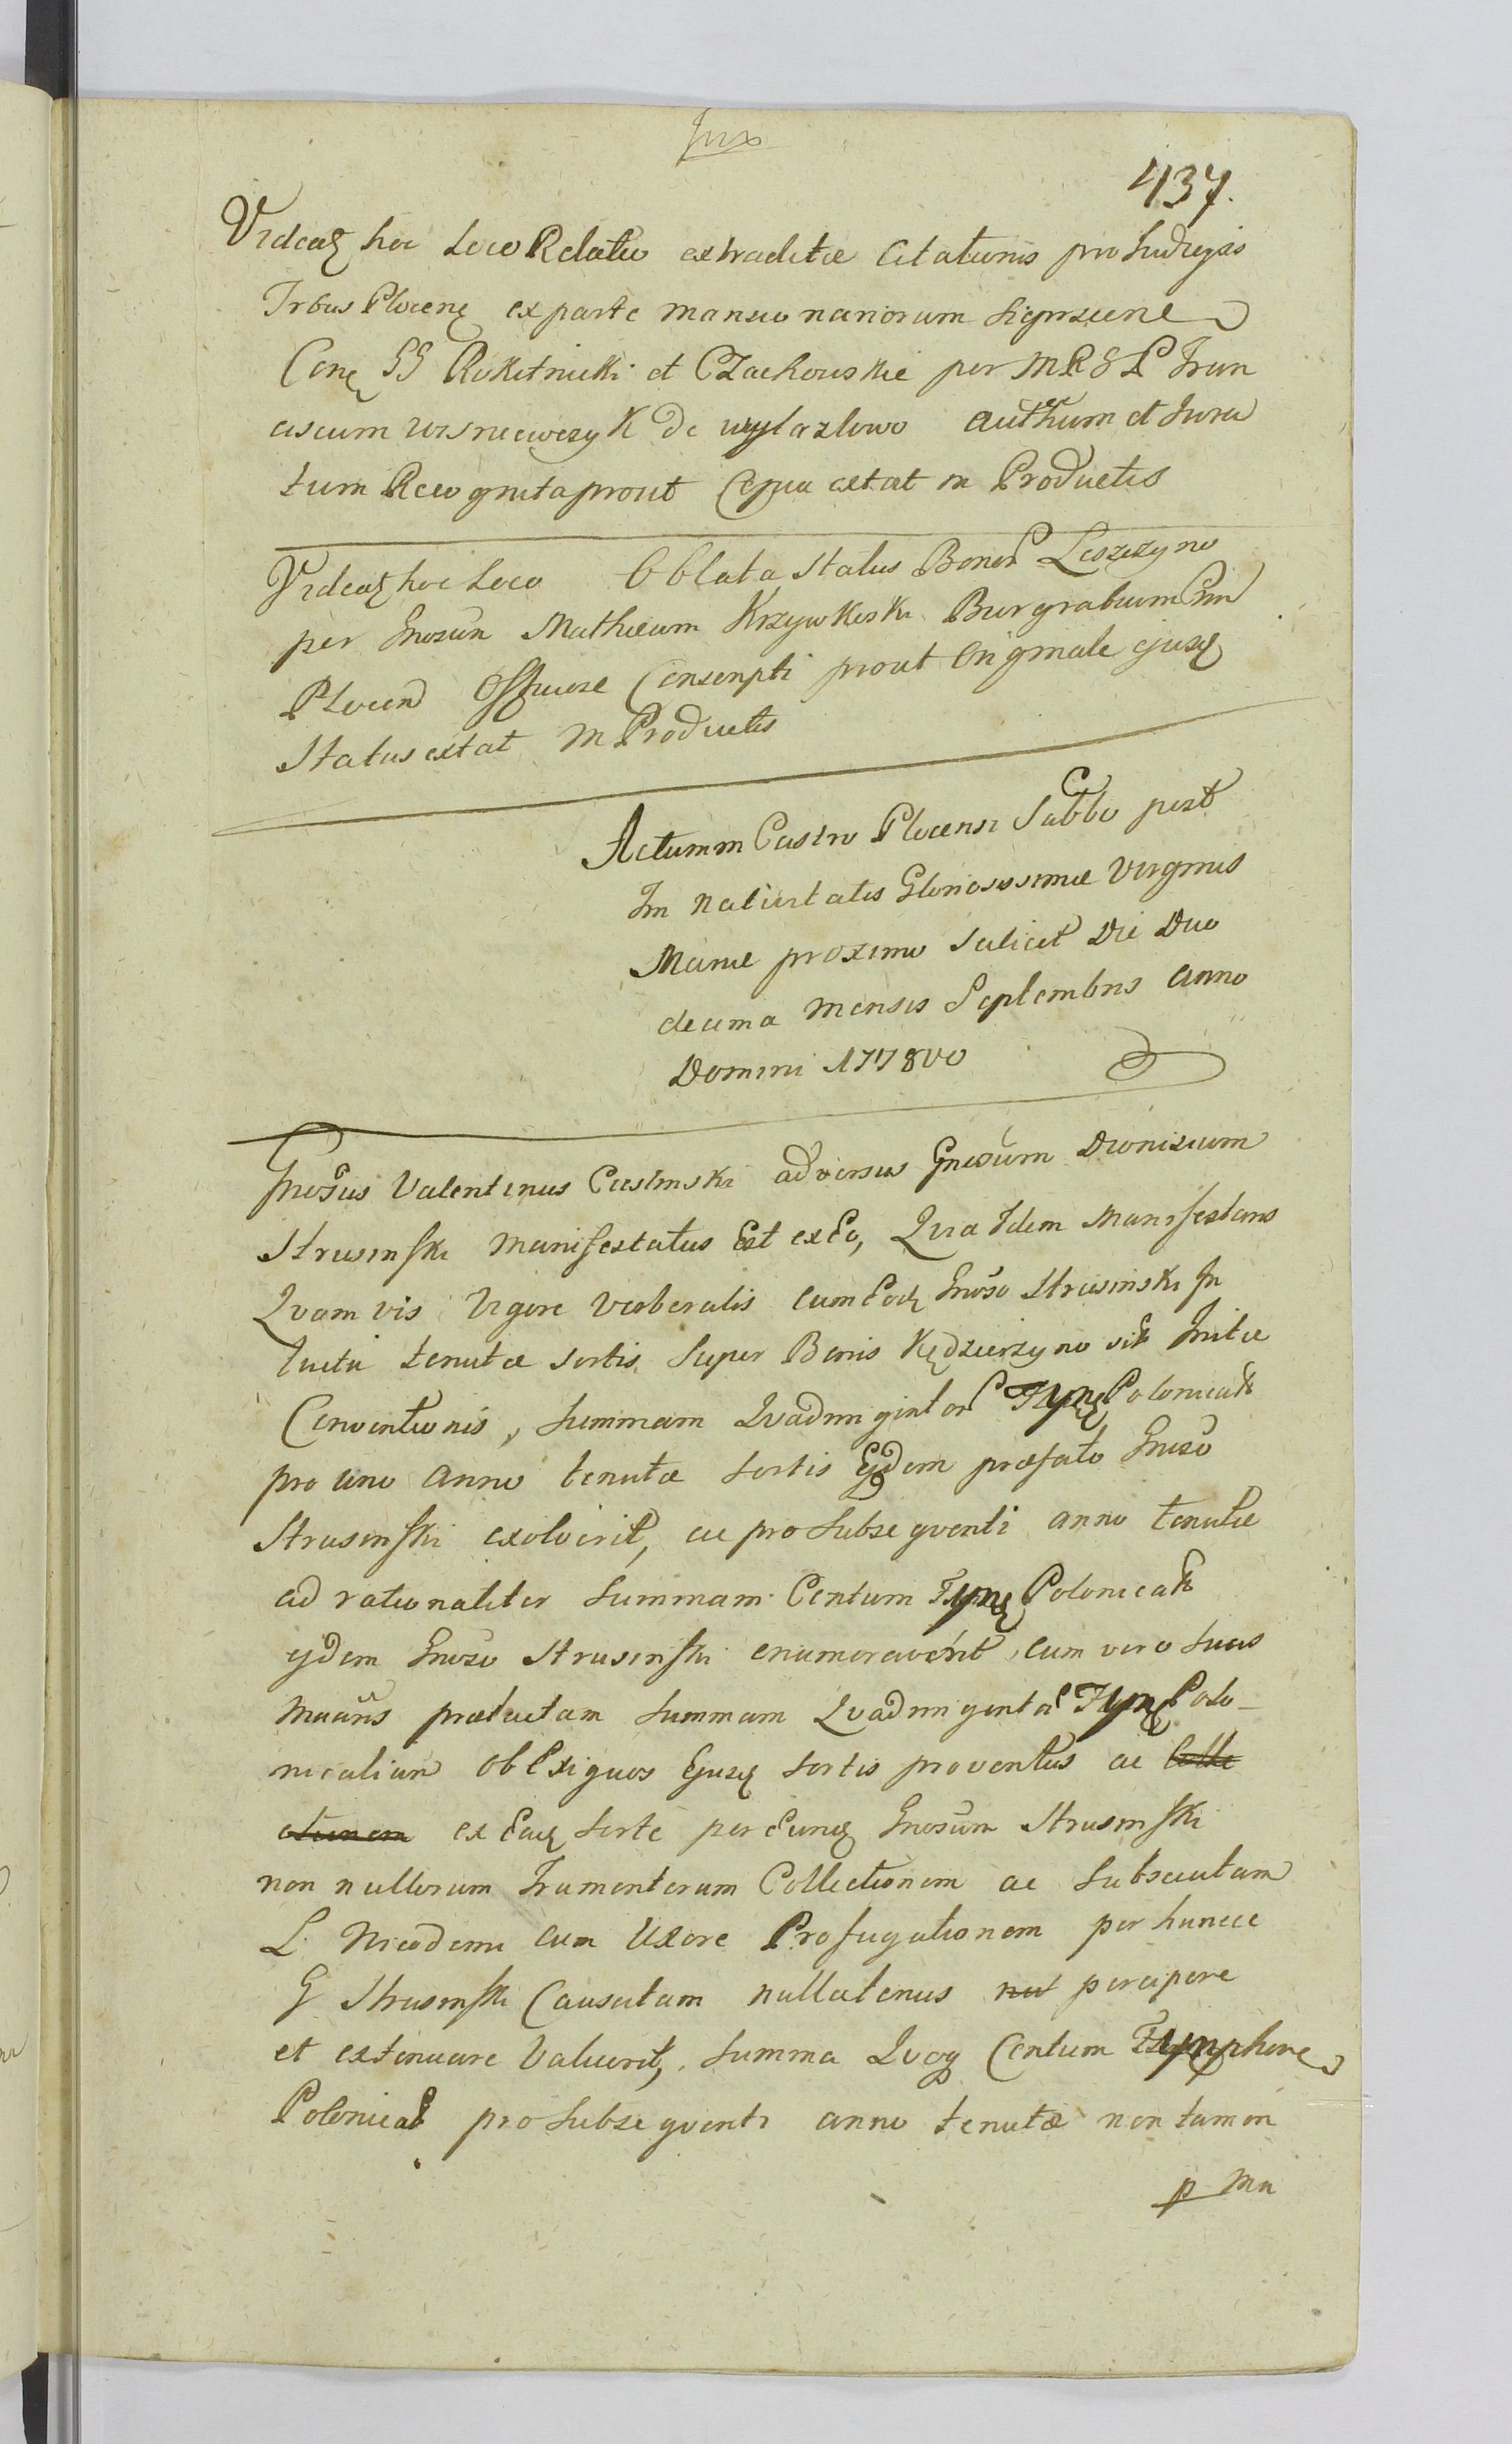 437.
Videat hoc Loco Relatio extraditæ Citationis pro Judicijs
Trbus Plocenẽ ex parte Mansionariorum Sieprscene
Conẽ GG Rokitnicki et Czachowskie per MRSP Fran
ciscum Wisniewczyk de Wylazlowo Authum et Jura
tum Recognita prout Copia extat in Productis
Videat hoc Loco Oblata Status Bonor Leszczyno
per Gnosum Mathæum Krzywkoski Burgrabium
Plocen Officiose Conscripti prout Originale ejusq
Status extat in Productis
Actum in Castro Plocensi Sabbo post
Fm Nativitatis Gloriosissimæ Virginis
Mariæ proximo Scilicet Die Duo
decima Mensis Septembris Anno
Domini 1778vo
Gnosus Valentinus Ciesinski adversus Gnosum Dionisium
Strusinski Manifestatus Est ex Eo, Quia Idem Manifestans
Quamvis Vigore Verberalis cum Eod Gnoso Strusinski In
tuitu tenutæ Sortis Super Bonis Kędzierzyno sit Initæ
Conventionis, Summam Quadringintor Tympẽ Polonicał
pro uno Anno tenutæ Sortis Ejdem præfato Gnoso
Strusinski exolverit, ac pro Subseqventi anno tenutæ
ad rationaliter Summam Centum Tympẽ Polonicał
ejdem Gnoso Strusinski enumeraverit, cum vero Suas
Manus prætactam Summam Quadringentor Tympẽ Polo-
nicalium ob Exiguos Ejusq Sortis proventus ac Colle
ctionem ex Eaq Sorte per Eunq Gnosum Strusinski
non nullorum Frumentorum Collectionem ac Subsecutam
L. Nicodemi cum Uxore Profugationem per huncce
G Strusinski Causatam nullatenus percipere
et extenuare Valuerit, Summa Quoq Centum Tympphone
Polonical pro Subseqventi anno tenutæ non tamen
p Ma